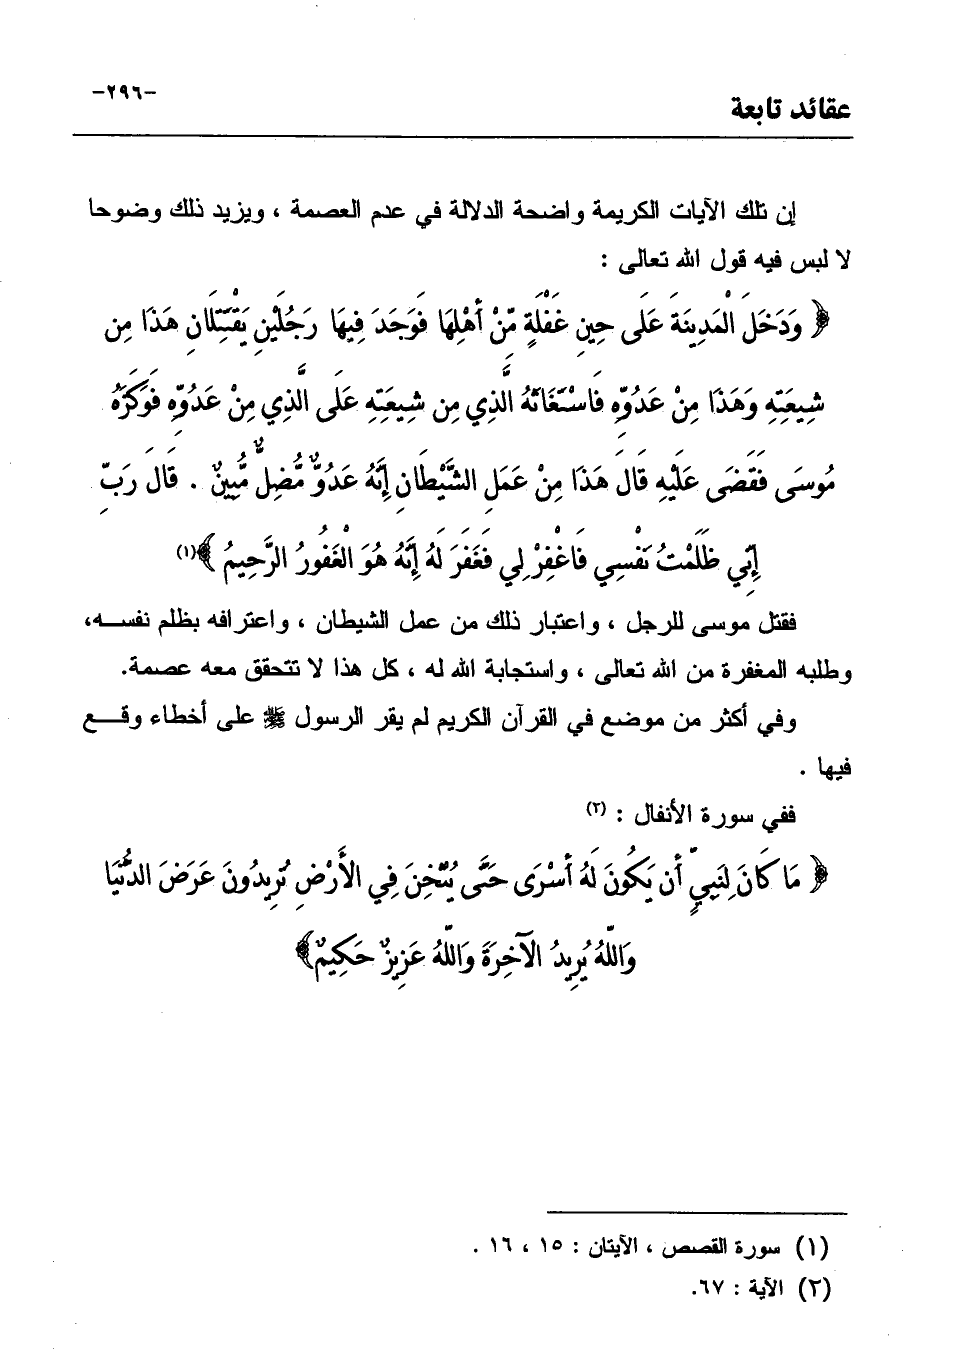 -٢٩٦-
عقائد تابعة
إن تلك الآيات الكريمة واضحة الدلالة في عدم العصمة ، ويزيد ذلك وضوحا
لا لبس فيه قول الله تعالى :
﴿ وَدَخَلَ الْمَدِينَةَ عَلَى حِينِ غَفْلَةٍ مِّنْ أَهْلِهَا فَوَجَدَ فِيهَا رَجُلَيْنِ يَقْتَتِلَانِ هَذَا مِن
شِيعَتِهِ وَهَذَا مِنْ عَدُوِّهِ فَاسْتَغَاثَهُ الَّذِي مِن شِيعَتِهِ عَلَى الَّذِي مِنْ عَدُوِّهِ فَوَكَزَهُ
مُوسَى فَقَضَى عَلَيْهِ قَالَ هَذَا مِنْ عَمَلِ الشَّيْطَانِ إِنَّهُ عَدُوٌّ مُّضِلٌّ مُّبِينٌ . قَالَ رَبِّ
إِنِّي ظَلَمْتُ نَفْسِي فَاغْفِرْ لِي فَغَفَرَ لَهُ إِنَّهُ هُوَ الْغَفُورُ الرَّحِيمُ ﴾(١)
فقتل موسى للرجل ، واعتبار ذلك من عمل الشيطان ، واعترافه بظلم نفسـه،
وطلبه المغفرة من الله تعالى ، واستجابة الله له ، كل هذا لا تتحقق معه عصمة.
وفي أكثر من موضع في القرآن الكريم لم يقر الرسول ﷺ على أخطاء وقـع
فيها .
ففي سورة الأنفال : (٢)
﴿ مَا كَانَ لِنَبِيٍّ أَن يَكُونَ لَهُ أَسْرَى حَتَّى يُثْخِنَ فِي الأَرْضِ تُرِيدُونَ عَرَضَ الدُّنْيَا
وَاللّهُ يُرِيدُ الآخِرَةَ وَاللّهُ عَزِيزٌ حَكِيمٌ﴾
(١) سورة القصص ، الآيتان : ١٥ ، ١٦ .
(٢) الآية : ٦٧.